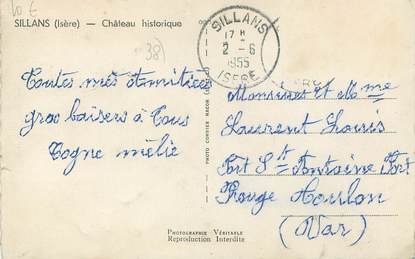 10 €
SILLANS (Isère) — Château historique
38)
SILLANS
17 H
2 - 6
1955
ISERE
Toutes mes Amitiées
gros baisers à Tous
Cogne mélie
PHOTO CORRIER MACON
Monsieur et Mme
Laurent Louis
Port St Antoine Fort
Rouge Toulon
(Var)
PHOTOGRAPHIE VÉRITABLE
Reproduction Interdite